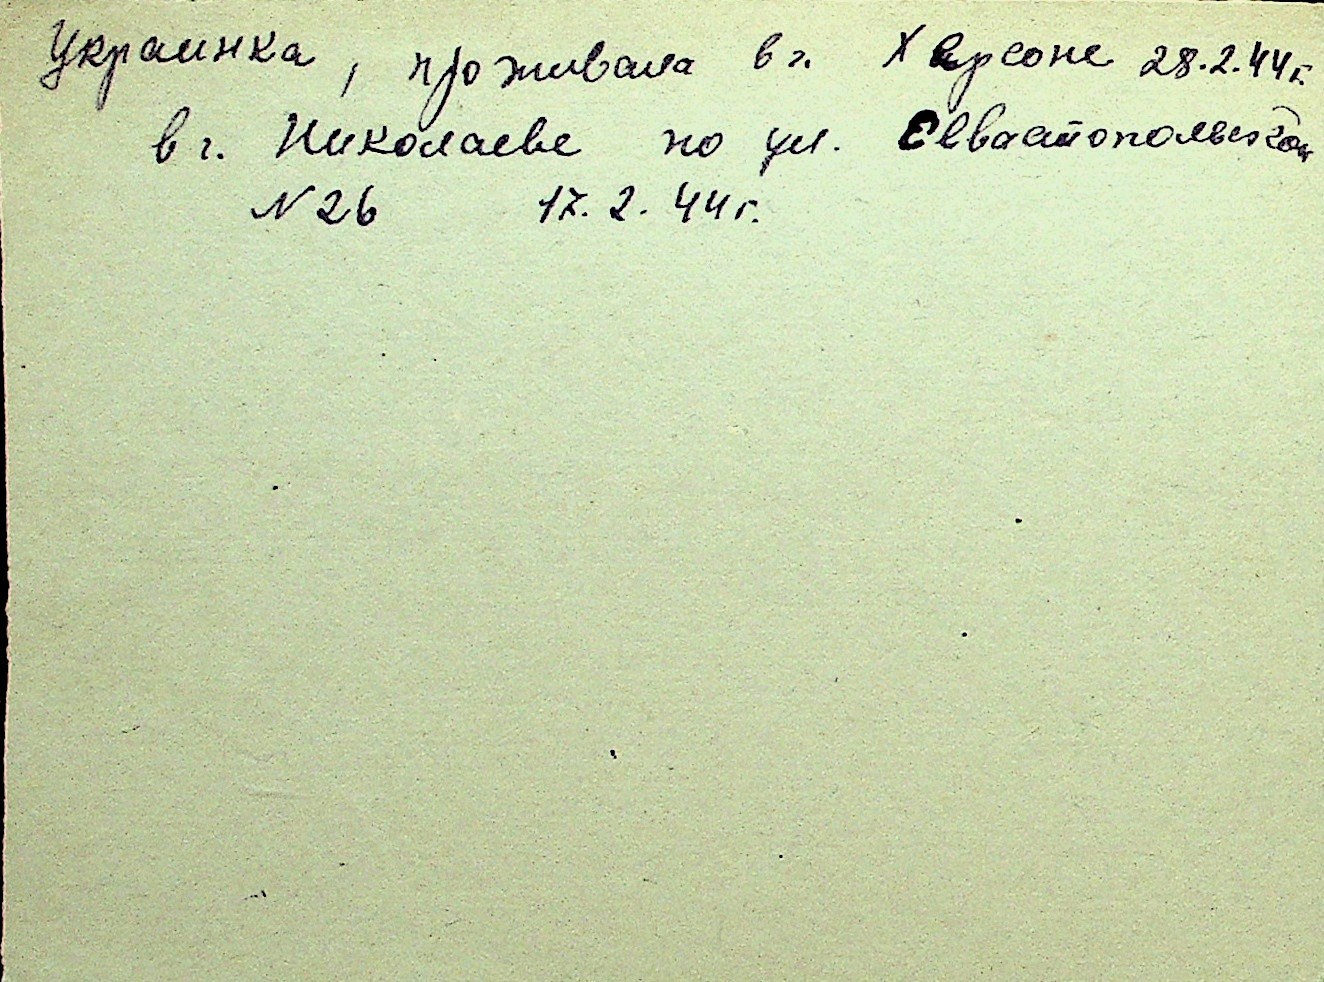 Украинка, проживала в г. Херсоне 28.2.44г.
в г. Николаеве по ул. Севастопольской
N 26 17.2.44г.